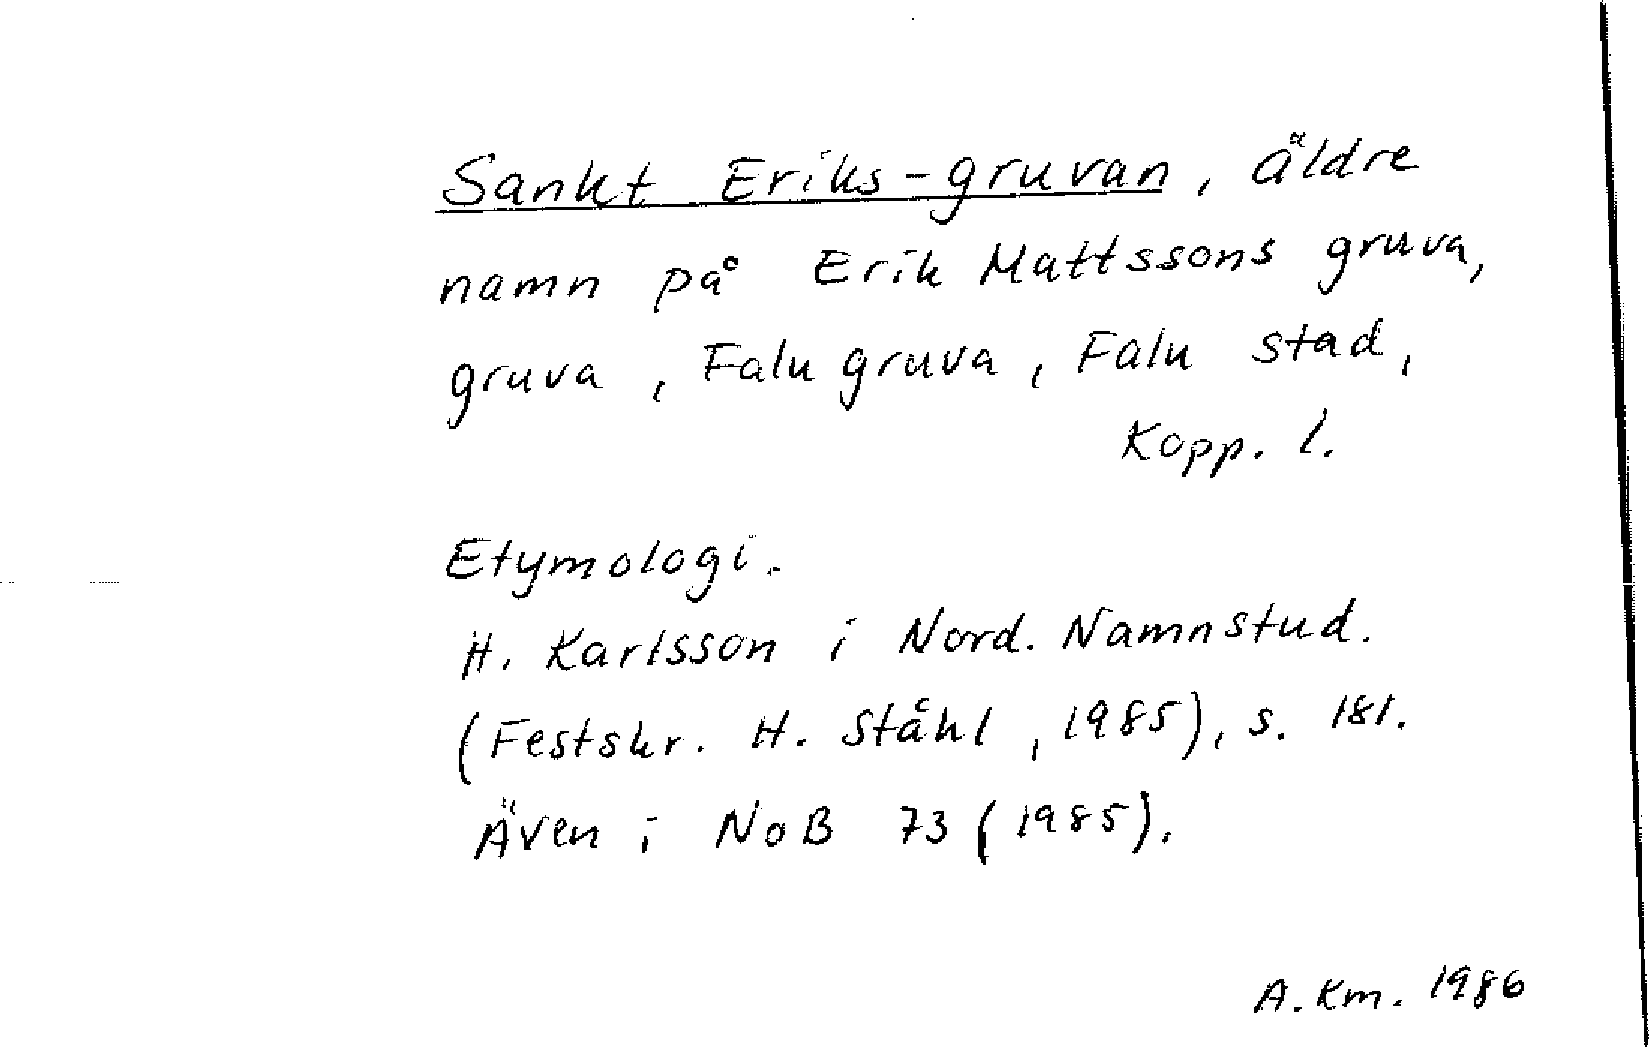 Sankt Eriks-gruvan, äldre
namn på Erik Mattssons gruva,
gruva, Falu gruva, Falu stad,
Kopp. l.
Etymologi.
H. Karlsson i Nord. Namnstud.
(Festskr. H. Ståhl, 1985), s. 181.
Även i NoB 73 (1985).
A. Km. 1986